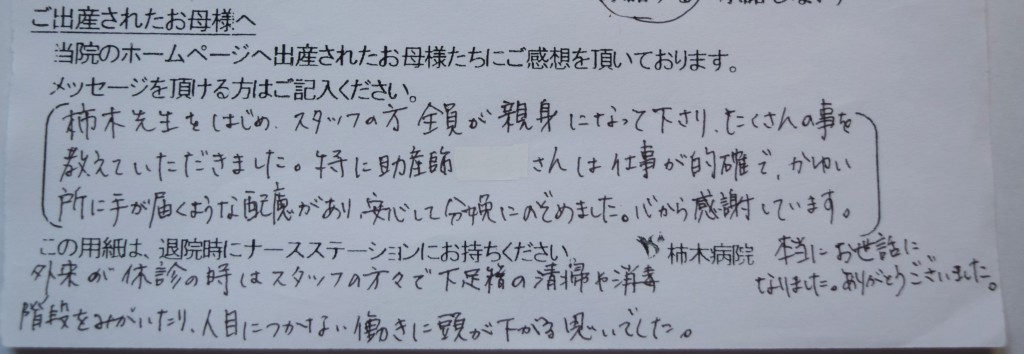 ご出産されたお母様へ
当院のホームページへ出産されたお母様たちにご感想を頂いております。
メッセージを頂ける方はご記入ください。
柿木先生をはじめ、スタッフの方全員が親身になって下さり、たくさんの事を
教えていただきました。特に助産師 さんは仕事が的確で、かゆい
所に手が届くような配慮があり、安心して分娩にのぞめました。心から感謝しています。
この用紙は、退院時にナースステーションにお持ちください。 柿木病院 本当にお世話に
なりました。ありがとうございました。
外来が休診の時はスタッフの方々で下足箱の清掃や消毒
階段をみがいたり、人目につかない働きに頭が下がる思いでした。